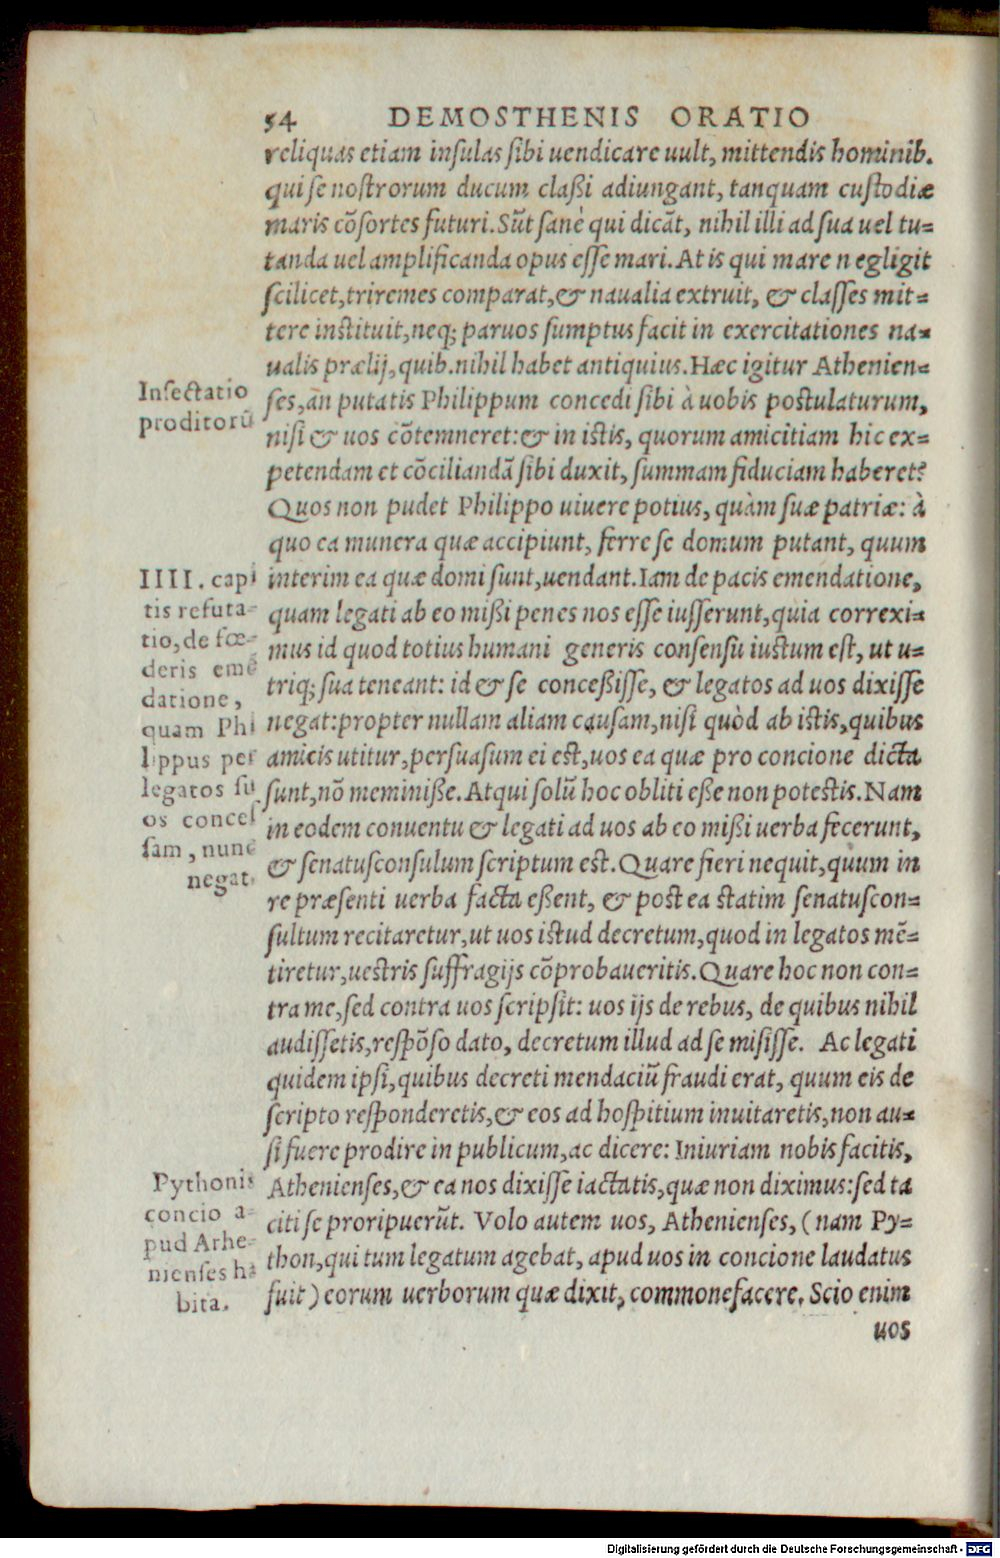 54 DEMOSTHENIS ORATIO
reliquas etiam insulas sibi uendicare uult, mittendis hominib.
qui se nostrorum ducum claßi adiungant, tanquam custodiæ
maris cõsortes futuri. Sũt sanè qui dicãt, nihil illi ad sua uel tu=
tanda uel amplificanda opus esse mari. At is qui mare negligit
scilicet, triremes comparat, & naualia extruit, & classes mit=
tere instituit, neq; paruos sumptus facit in exercitationes na=
ualis prælij, quib. nihil habet antiquius. Hæc igitur Athenien=
Insectatio
proditorũ
ses, an putatis Philippum concedi sibi à uobis postulaturum,
nisi & uos cõtemneret: & in istis, quorum amicitiam hic ex=
petendam et cõciliandã sibi duxit, summam fiduciam haberet?
Quos non pudet Philippo uiuere potius, quàm suæ patriæ: à
quo ea munera quæ accipiunt, ferre se domum putant, quum
IIII. capi
tis refuta=
tio, de fœ=
deris emẽ
datione,
quam Phi
lippus per
legatos su
os conces
sam, nunc
negat.
interim ea quæ domi sunt, uendant. Iam de pacis emendatione,
quam legati ab eo mißi penes nos esse iusserunt, quia correxi=
mus id quod totius humani generis consensu iustum est, ut u=
triq; sua teneant: id & se conceßisse, & legatos ad uos dixisse
negat: propter nullam aliam causam, nisi quòd ab istis, quibus
amicis utitur, persuasum ei est, uos ea quæ pro concione dicta
sunt, nõ meminiße. Atqui solũ hoc obliti eße non potestis. Nam
in eodem conuentu & legati ad uos ab eo mißi uerba fecerunt,
& senatusconsulum scriptum est. Quare fieri nequit, quum in
re præsenti uerba facta eßent, & postea statim senatuscon=
sultum recitaretur, ut uos istud decretum, quod in legatos mẽ=
tiretur, uestris suffragijs cõprobaueritis. Quare hoc non con=
tra me, sed contra uos scripsit: uos ijs de rebus, de quibus nihil
audissetis, respõso dato, decretum illud ad se misisse. Ac legati
quidem ipsi, quibus decreti mendaciũ fraudi erat, quum eis de
scripto responderetis, & eos ad hospitium inuitaretis, non au=
si fuere prodire in publicum, ac dicere: Iniuriam nobis facitis,
Pythonis
concio a=
pud Athe=
nienses ha
bita.
Athenienses, & ea nos dixisse iactatis, quæ non diximus: sed ta
citi se proripuerũt. Volo autem uos, Athenienses, (nam Py=
thon, qui tum legatum agebat, apud uos in concione laudatus
fuit) eorum uerborum quæ dixit, commonefacere. Scio enim
uos
Digitalisierung gefördert durch die Deutsche Forschungsgemeinschaft - DFG